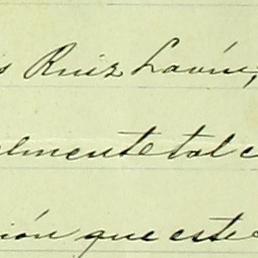 s Ruiz Lavín,
almente tal c
ión que este